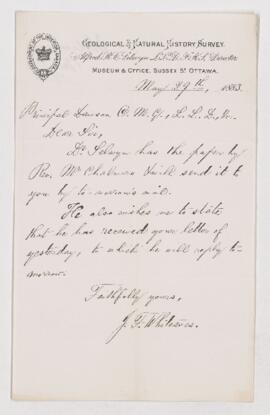 GEOLOGICAL & NATURAL HISTORY SURVEY.
Alfred R. C. Selwyn L.L.D. F.R.S. Director
MUSEUM & OFFICE, SUSSEX ST. OTTAWA.
May 29th, 1883.
Principal Dawson C. M. G., L. L. D.,
Dear Sir,
Dr. Selwyn has the paper by
Rev. Mr Chalmers & will send it to
you by to-morrow's mail.
He also wishes me to state
that he has received your letter of
yesterday, to which he will reply to-
morrow.
Faithfully yours,
J. F. Whiteaves.